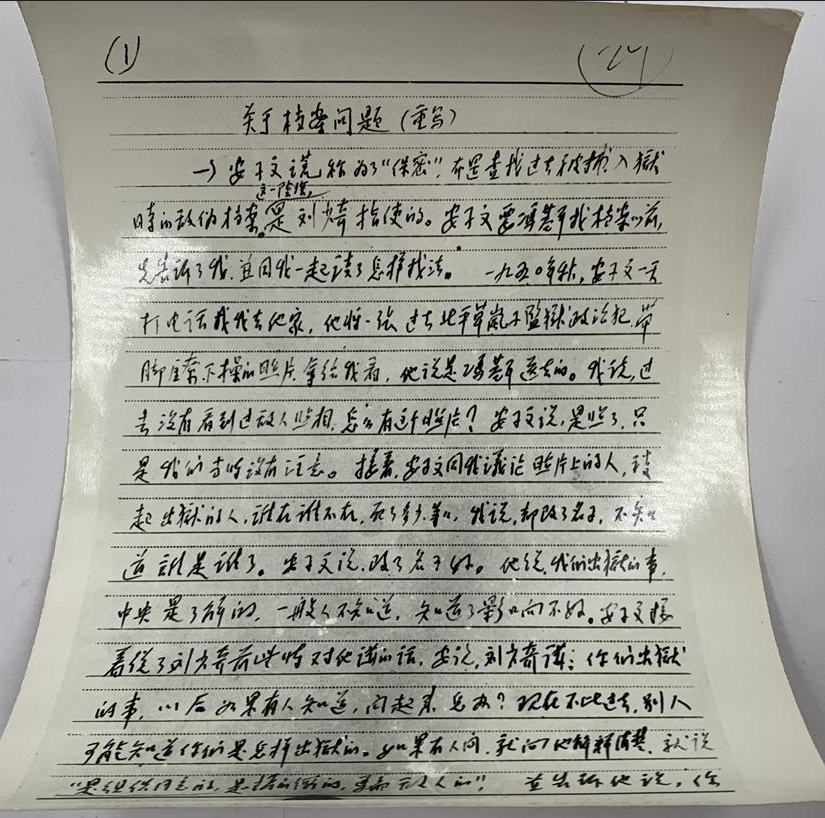 (1)
关于档案问题（重写）
一）安子文谎称为了“保密”，布置查找过去被捕入狱
这一阴谋，
时的敌伪档案。是刘少奇指使的。安子文要冯基平找档案以前，
先告诉了我，并同我一起谈了怎样找法。一九五〇年秋，安子文一天
打电话找我去他家，他将一张过去北平草岚子监狱政治犯带
脚镣下操的照片拿给我看，他说是冯基平送去的。我说，过
去没有看到过敌人照相，怎么有这个照片？安子文说，是照了，只
是我们当时没有注意。接着，安子文同我议论照片上的人，谈
起出狱的人，谁在谁不在，死了多少等，我说，都改了名子，不知
道谁是谁了。安子文说，改了名子好。他说，我们出狱的事，
中央是了解的，一般人不知道，知道了影响不好。安子文接
着说了刘少奇前些时对他讲的话，安说，刘少奇讲：你们出狱
的事，以后如果有人知道，问起来怎办？现在不比过去，别人
可能知道你们是怎样出狱的。如果有人问，就向他解释清楚，就说
“是组织同意的，是搞的假的，是骗敌人的”，并告诉他说，你